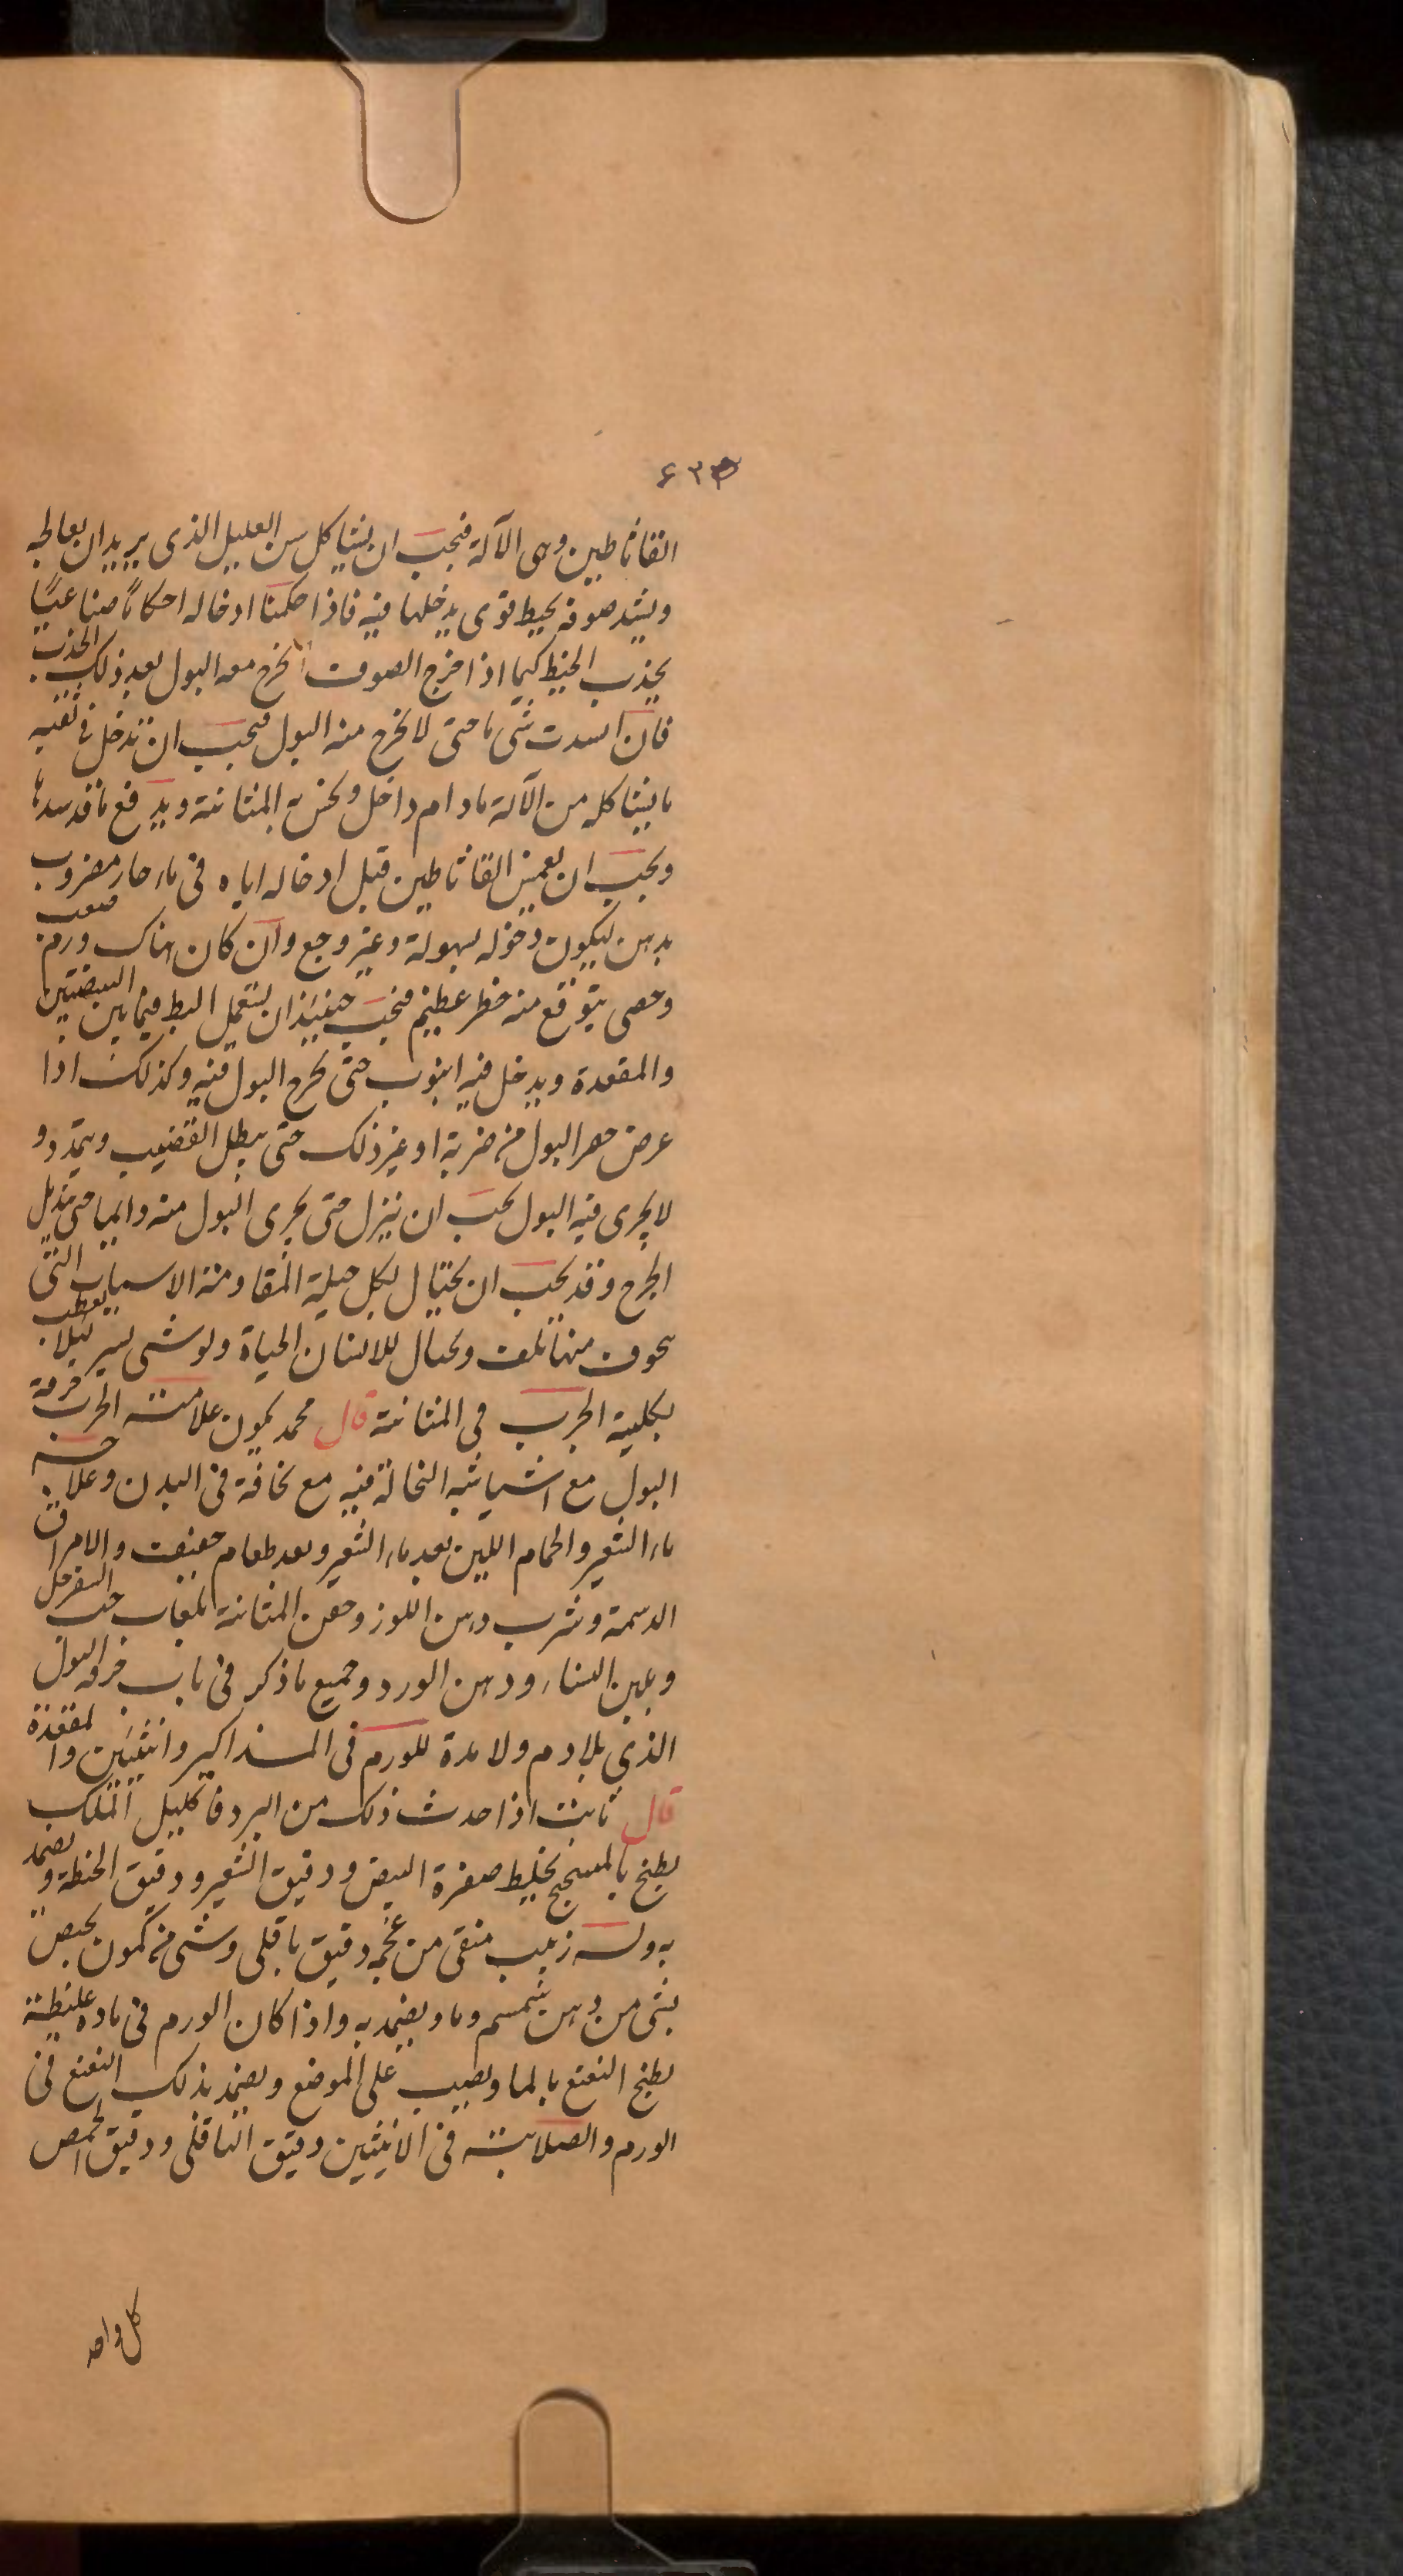 ٤٣٣
القاثاطين وهى الآلة فيجب ان يشاكل سن العليل الذى يريد ان يعالجه
ويشد صوفه بخيط قوى يدخلها فيه فاذا حكمنا ادخاله احكاما صناعيا
يجذب الخيط كيما اذا خرج الصوف يخرج معه البول بعد ذلك الجذب
فان انسدت شى ما حتى لا يخرج منه البول فيجب ان تدخل فى ثقبه
ما يشاكله من الآلة مادام داخل ونحن به المثانة ويدفع ما قد سدها
ويجب ان يغمس القاثاطين قبل ادخاله اياه فى ماء حار مضروب
بدهن ليكون دخوله بسهولة وغير وجع وان كان هناك ورم صعب
وحصى يتوقع منه خطر عظيم فيجب حينئذ ان يستعمل البط فيما بين البيضتين
والمقعدة ويدخل فيه انبوب حتى يخرج البول فيه وكذلك اذا
عرض حصر البول من ضربة او غير ذلك حتى يبطل القضيب ويتمدد و
لا يجرى فيه البول يجب ان ينزل حتى يجرى البول منه دايما حتى يندمل
الجرح وقد يجب ان يحتال لكل حيلة المقاومة الاسباب التى
يخوف منها تلف ويحتال للانسان الحياة ولو شى يسير ليلا يعطب
بكلية الجرب فى المثانة قال محمد يكون علامت الجرب حرقة
البول مع اشيا شبه النخالة فيه مع نحافة فى البدن وعلاجه
ماء الشعير والحمام اللين بعد ماء الشعير وبعد طعام خفيف والامراق
الدسمة وشرب دهن اللوز وحقن المثانة بلعاب حب السفرجل
وبلبن النساء ودهن الورد وجميع ما ذكر فى باب حرقة البول
الذى بلا دم ولا مدة للورم فى المذاكير وانثيين والمقعدة
قال ثابت اذا حدث ذلك من البرد فاكليل الملك
يطبخ بالميبختج يخليط صفرة البيض ودقيق الشعير ودقيق الحنطة ويضمد
به وله زبيب منقى من عجمه دقيق باقلى وشى من كمون يحبص
بشى من دهن سمسم وما ويضمد به واذا كان الورم فى ماده غليظة
يطبخ النعنع بالما ويصب على الموضع ويضمد بذلك النعنع فى
الورم والصلابت فى الانثيين دقيق الباقلى ودقيق الحمص
كل واحد